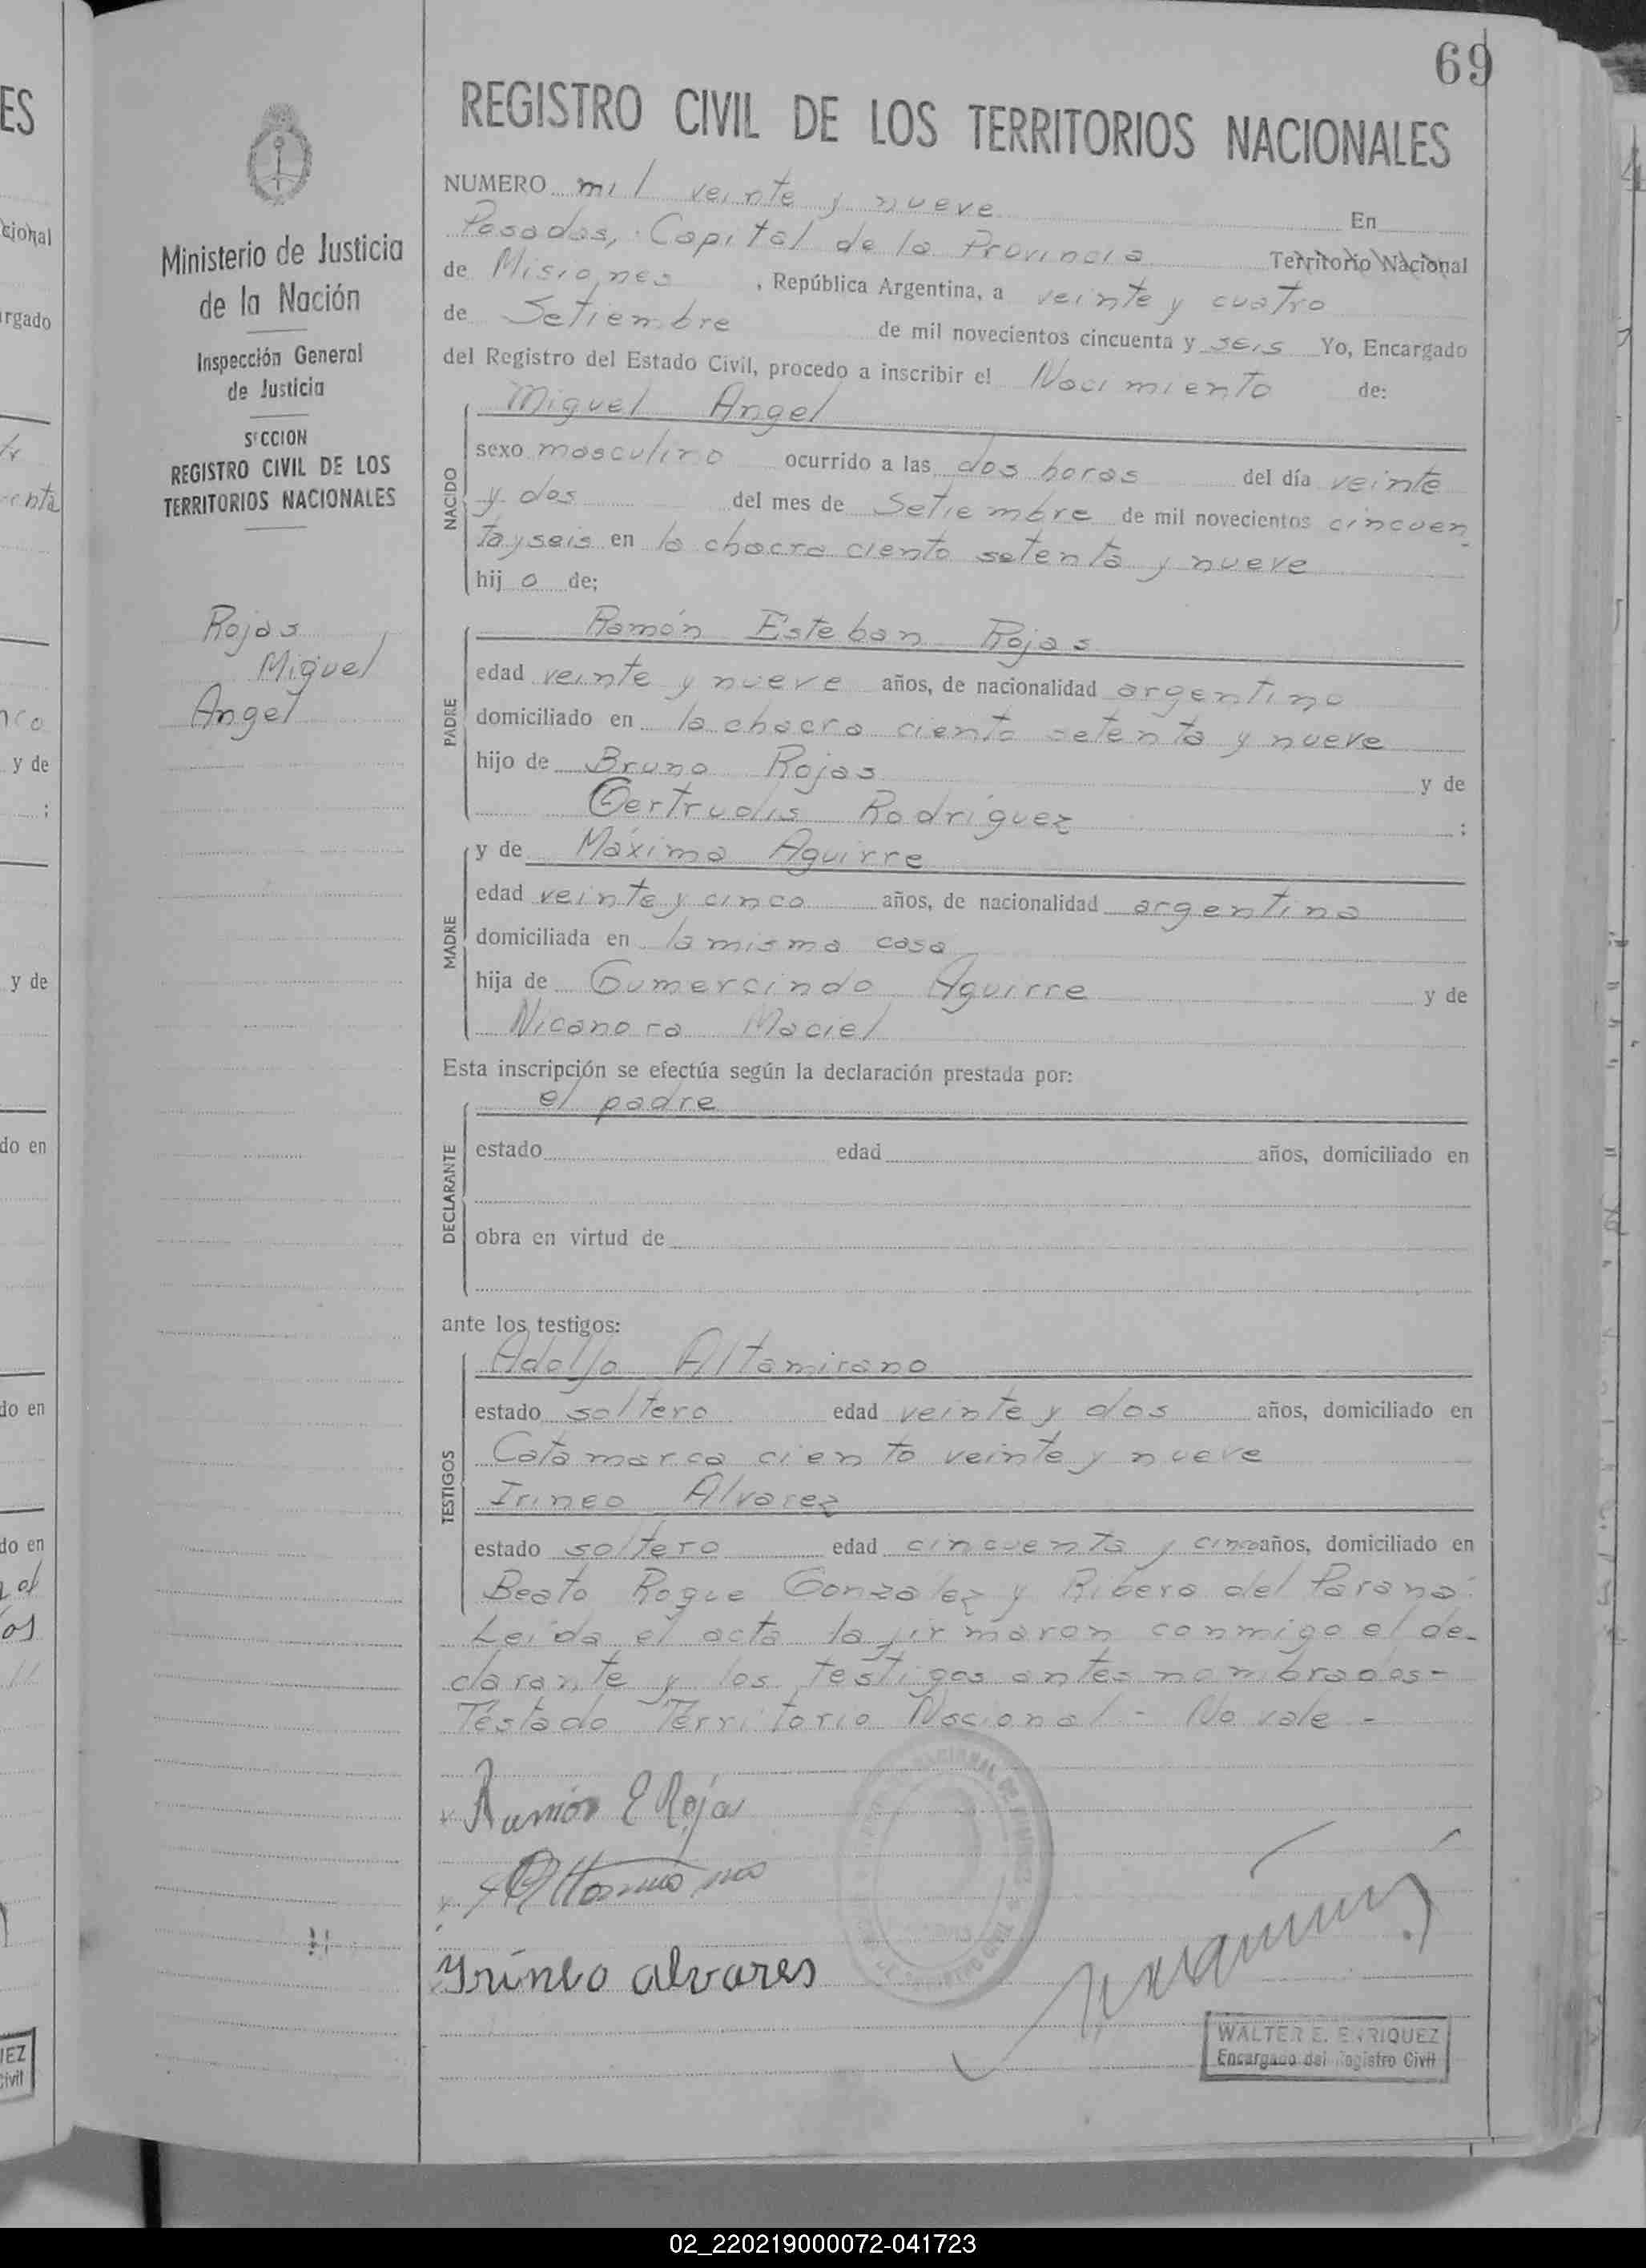 69
REGISTRO CIVIL DE LOS TERRITORIOS NACIONALES
Ministerio de Justicia
de la Nación
Inspección General
de Justicia
SECCION
REGISTRO CIVIL DE LOS
TERRITORIOS NACIONALES
Rojas
Miguel
Angel
NUMERO mil veinte y nueve En
Posadas, Capital de la Provincia Territorio Nacional
de Misiones, República Argentina, a veinte y cuatro
de Setiembre de mil novecientos cincuenta y seis Yo, Encargado
del Registro del Estado Civil, procedo a inscribir el Nacimiento de:
NACIDO
Miguel Angel
sexo masculino ocurrido a las dos horas del día veinte
y dos del mes de Setiembre de mil novecientos cincuen
tayseis en la chacra ciento setenta y nueve
hij o de;
PADRE
Ramón Esteban Rojas
edad veinte y nueve años, de nacionalidad argentino
domiciliado en la chacra ciento setenta y nueve
hijo de Bruno Rojas y de
Gertrudis Rodríguez ;
MADRE
y de Máxima Aguirre
edad veinte y cinco años, de nacionalidad argentina
domiciliada en la misma casa
hija de Gumercindo Aguirre y de
Nicanora Maciel
Esta inscripción se efectúa según la declaración prestada por:
DECLARANTE
el padre
estado edad años, domiciliado en
obra en virtud de
ante los testigos:
TESTIGOS
Adolfo Altamirano
estado soltero edad veinte y dos años, domiciliado en
Catamarca ciento veinte y nueve
Irineo Alvarez
estado soltero edad cincuenta y cinco años, domiciliado en
Beato Roque González y Ribera del Paraná
Leída el acta la firmaron conmigo el de-
clarante y los testigos antes nombrados-
Testado Territorio Nacional - No vale -
Ramón E Rojas
Altamirano
Yrineo alvares
WALTER E. ENRIQUEZ
Encargado del Registro Civil
02_220219000072-041723